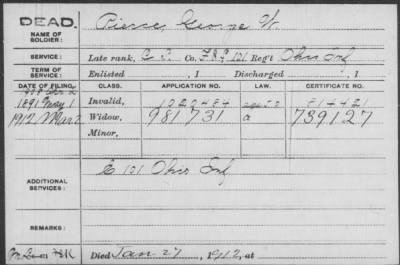 DEAD. Pierce, George W.
NAME OF SOLDIER:
SERVICE: Late rank, Co. F & S, 101 Reg't Ohio Inf
TERM OF SERVICE: Enlisted , 1 Discharged , 1
DATE OF FILING. CLASS. APPLICATION NO. LAW. CERTIFICATE NO.
1891 May 1 Invalid,
1912 Mar 2 Widow, 981731 a 739127
Minor,
ADDITIONAL SERVICES: E 101 Ohio Inf
REMARKS:
Died Jan 27, 1912, at